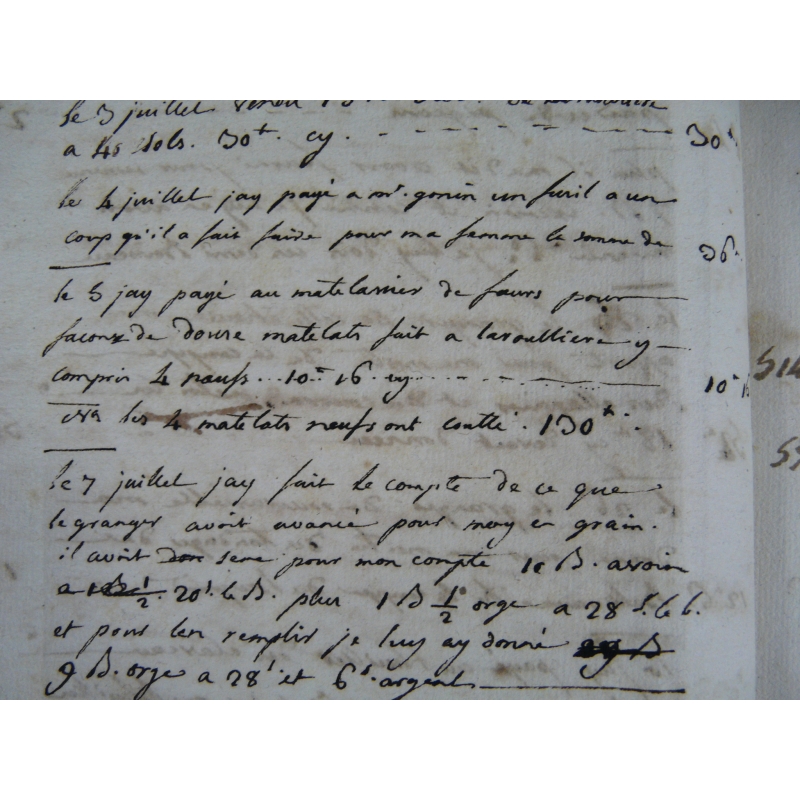 le 3 juillet vendu
a 40 sols. 30ᵗ. cy. 30ᵗ
le 4 juillet jay payé a mr. gonin un fusil a un
coup qu'il a fait faire pour ma femme la somme de 36
le 5 jay payé au matelassier de feurs pour
facon de douse matelats fait a laroulliere y
compris 4 neufs .. 10ᵗ 16. cy 10ᵗ
les 4 matelats neufs ont coutté. 130ᵗ.
le 7 juillet jay fait le compte de ce que
le granger avoit avancé pour moy en grain.
il avoit semé pour mon compte 10 B. avoine
a 20ˢ. le B. plus 1 B ½ orge a 28 s. le b.
et pour len remplir je luy ay donné
9 B. orge a 28ˢ et 6ˢ. argent